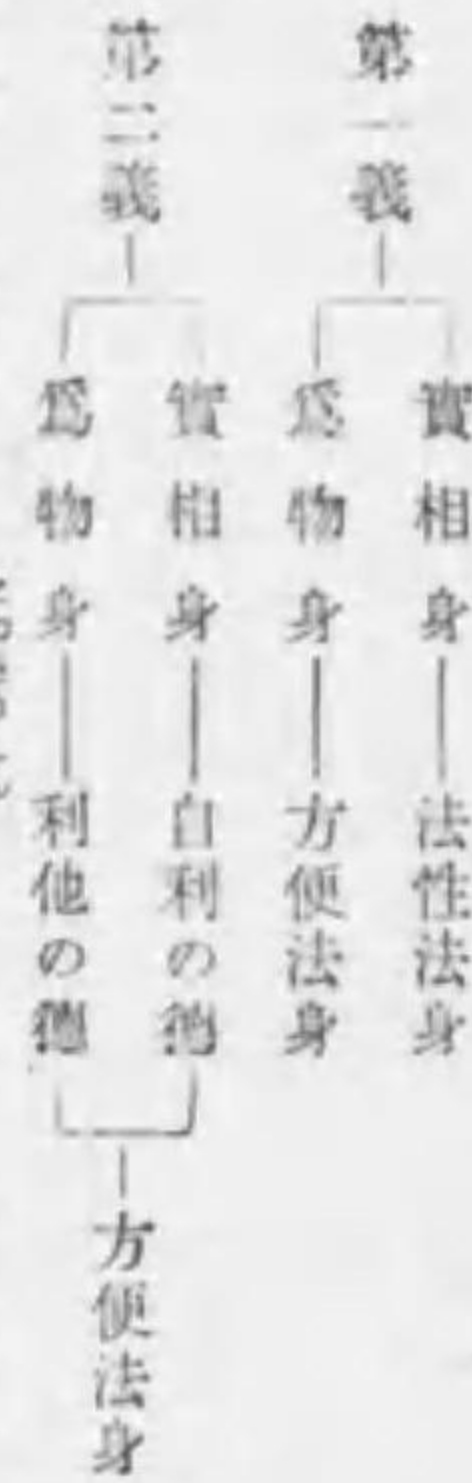 第一義
實相身——法性法身
爲物身——方便法身
第二義
實相身——自利の德
爲物身——利他の德
方便法身